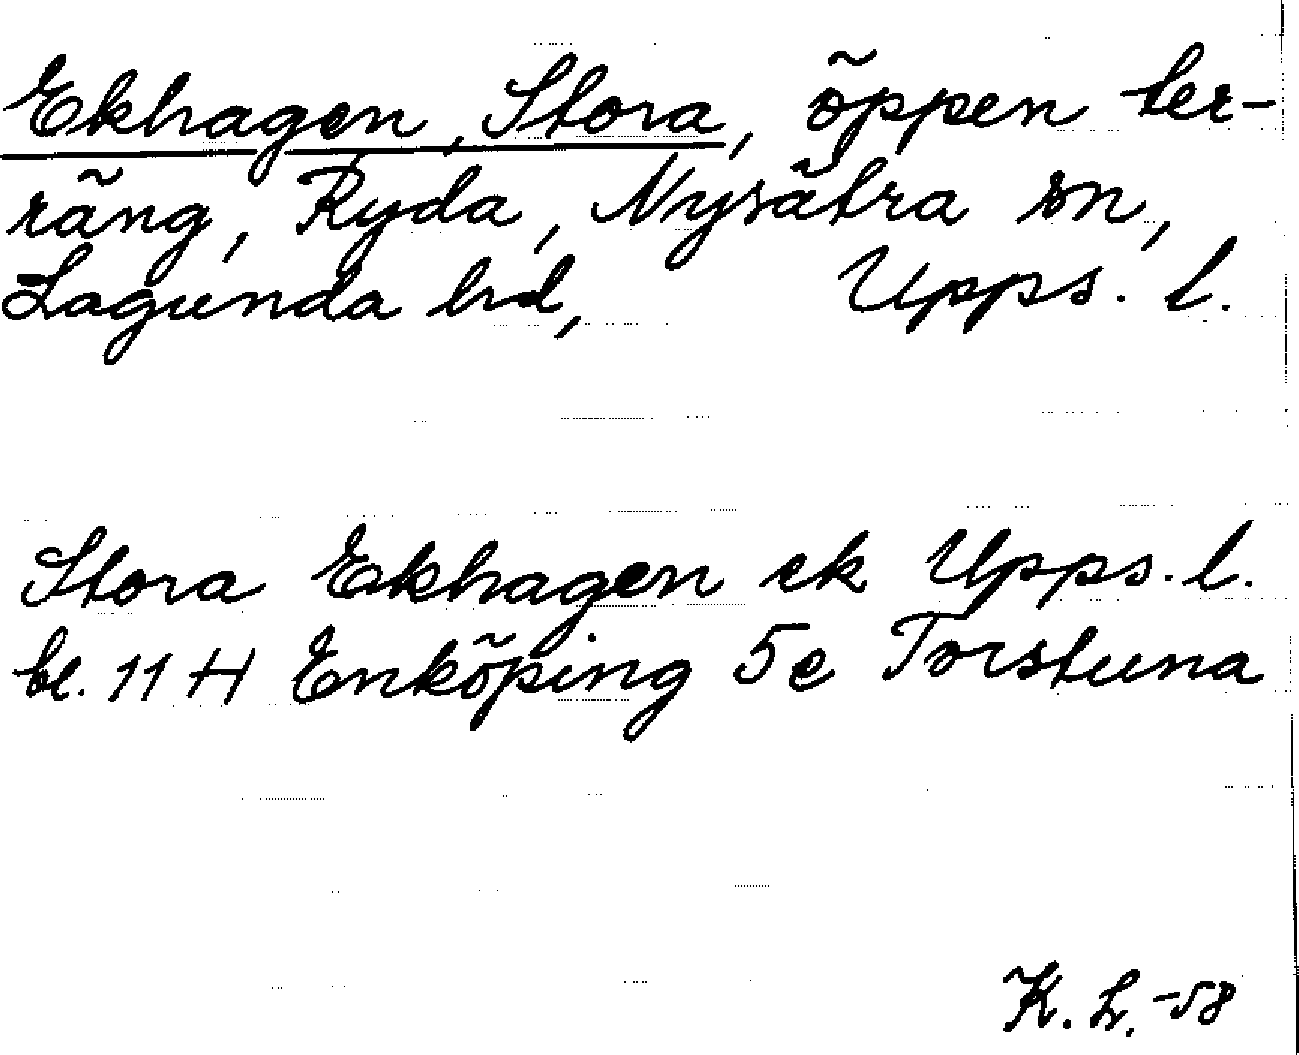 Ekhagen, Stora, öppen ter-
räng, Ryda, Nysätra sn,
Lagunda hd, Upps. l.
Stora Ekhagen ek Upps. l.
bl. 11 H Enköping 5e Torstuna
K. L. -58